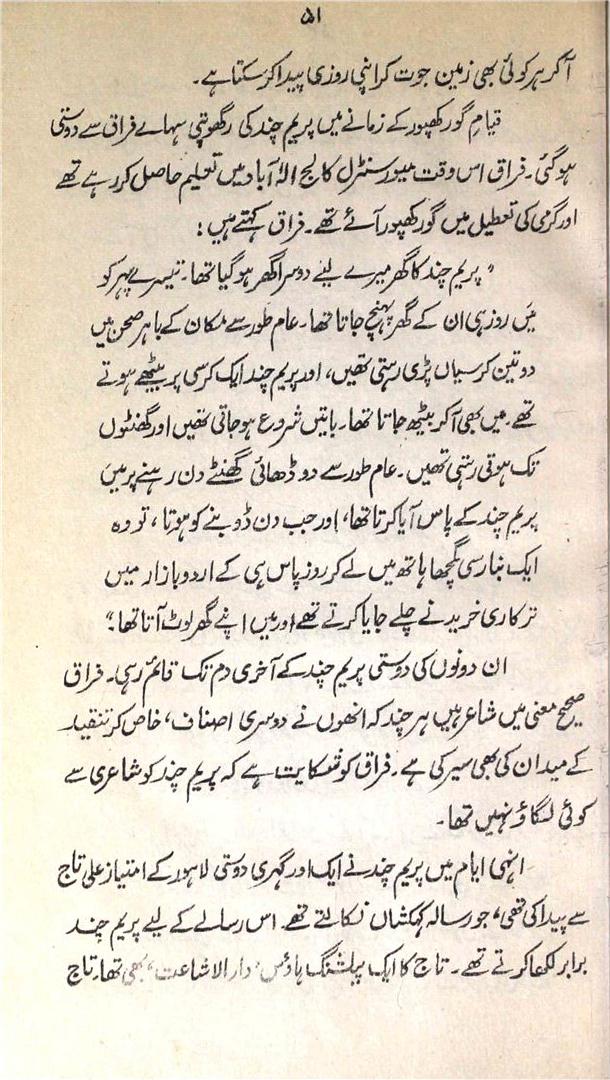 ۵۱
آکر ہر کوئی بھی زمین جوت کر اپنی روزی پیدا کر سکتا ہے۔
قیامِ گورکھپور کے زمانے میں پریم چند کی رگھوپتی سہائے فراق سے دوستی
ہو گئی۔ فراق اس وقت میور سنٹرل کالج الٰہ آباد میں تعلیم حاصل کر رہے تھے
اور گرمی کی تعطیل میں گورکھپور آئے تھے۔ فراق کہتے ہیں:
"پریم چند کا گھر میرے لیے دوسرا گھر ہو گیا تھا۔ تیسرے پہر کو
میں روز ہی ان کے گھر پہنچ جاتا تھا۔ عام طور سے مکان کے باہر صحن میں
دو تین کرسیاں پڑی رہتی تھیں، اور پریم چند ایک کرسی پر بیٹھے ہوتے
تھے۔ میں بھی آکر بیٹھ جاتا تھا۔ باتیں شروع ہو جاتی تھیں اور گھنٹوں
تک ہوتی رہتی تھیں۔ عام طور سے دو ڈھائی گھنٹے دن رہنے پر میں
پریم چند کے پاس آیا کرتا تھا، اور جب دن ڈوبنے کو ہوتا، تو وہ
ایک بنارسی گمچھا ہاتھ میں لے کر روز پاس ہی کے اردو بازار میں
ترکاری خریدنے چلے جایا کرتے تھے اور میں اپنے گھر لوٹ آتا تھا۔"
ان دونوں کی دوستی پریم چند کے آخری دم تک قائم رہی۔ فراق
صحیح معنی میں شاعر ہیں ہر چند کہ انھوں نے دوسری اصناف، خاص کر تنقید
کے میدان کی بھی سیر کی ہے۔ فراق کو شکایت ہے کہ پریم چند کو شاعری سے
کوئی لگاؤ نہیں تھا۔
انہی ایام میں پریم چند نے ایک اور گہری دوستی لاہور کے امتیاز علی تاج
سے پیدا کی تھی، جو رسالہ کہکشاں نکالتے تھے۔ اس رسالے کے لیے پریم چند
برابر لکھا کرتے تھے۔ تاج کا ایک پبلشنگ ہاؤس 'دار الاشاعت' بھی تھا۔ تاج